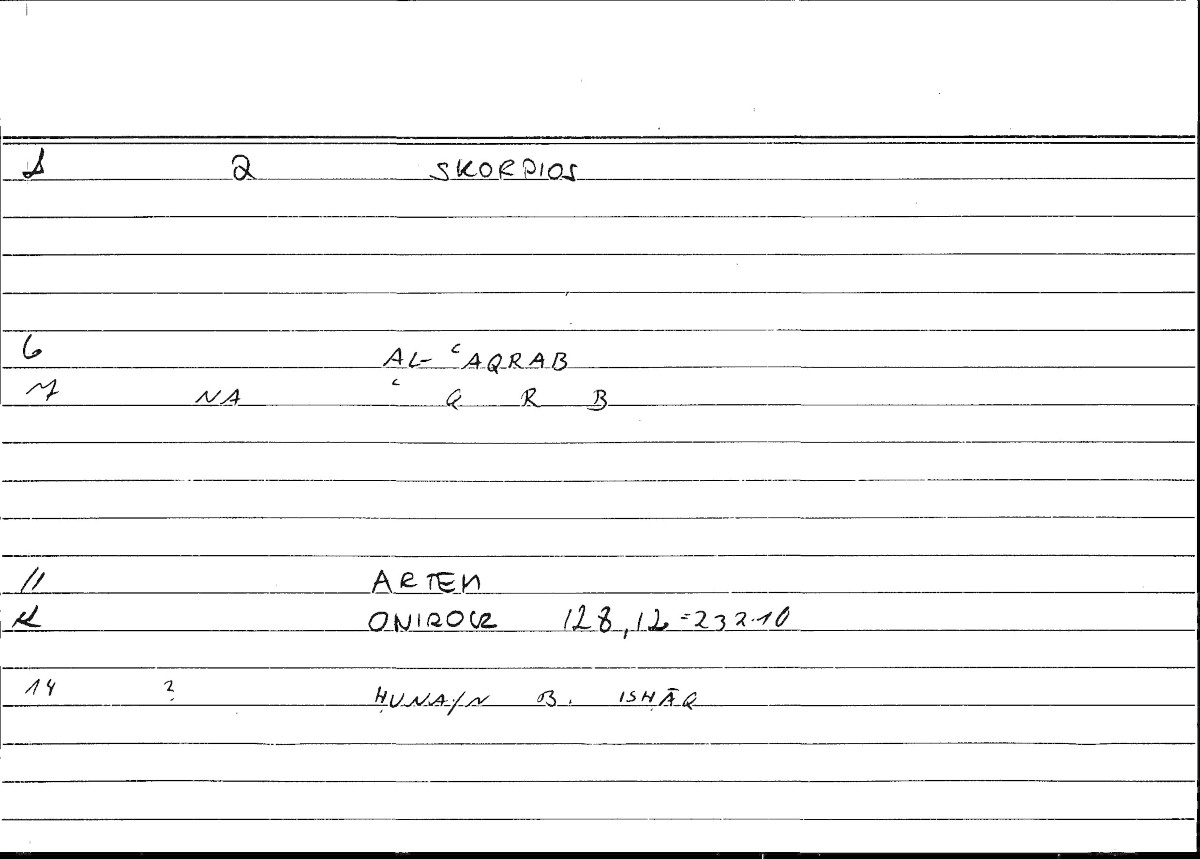 1 2 SKORPIOS
6 AL-ʿAQRAB
7 NA ʿ Q R B
11 ARTEM
12 ONIROCR 128,12=232.10
14 ? ḤUNAYN B. ISḤĀQ